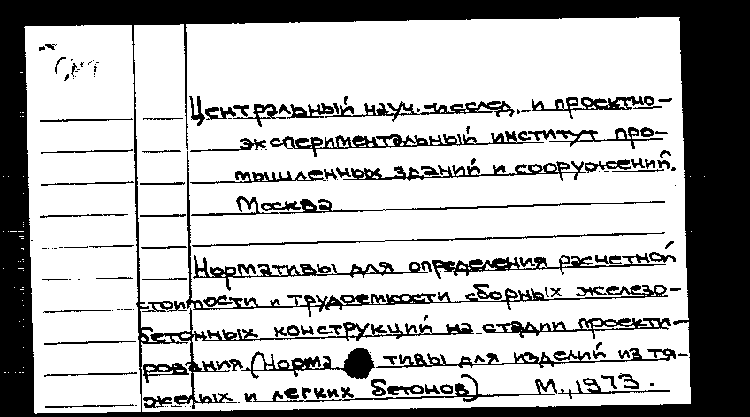 Центральный науч.-исслед. и проектно-
экспериментальный институт про-
мышленных зданий и сооружений.
Москва
Нормативы для определения расчетной
стоимости и трудоемкости сборных железо-
бетонных конструкций на стадии проекти-
рования. (Нормативы для изделий из тя-
желых и легких бетонов) М., 1973.